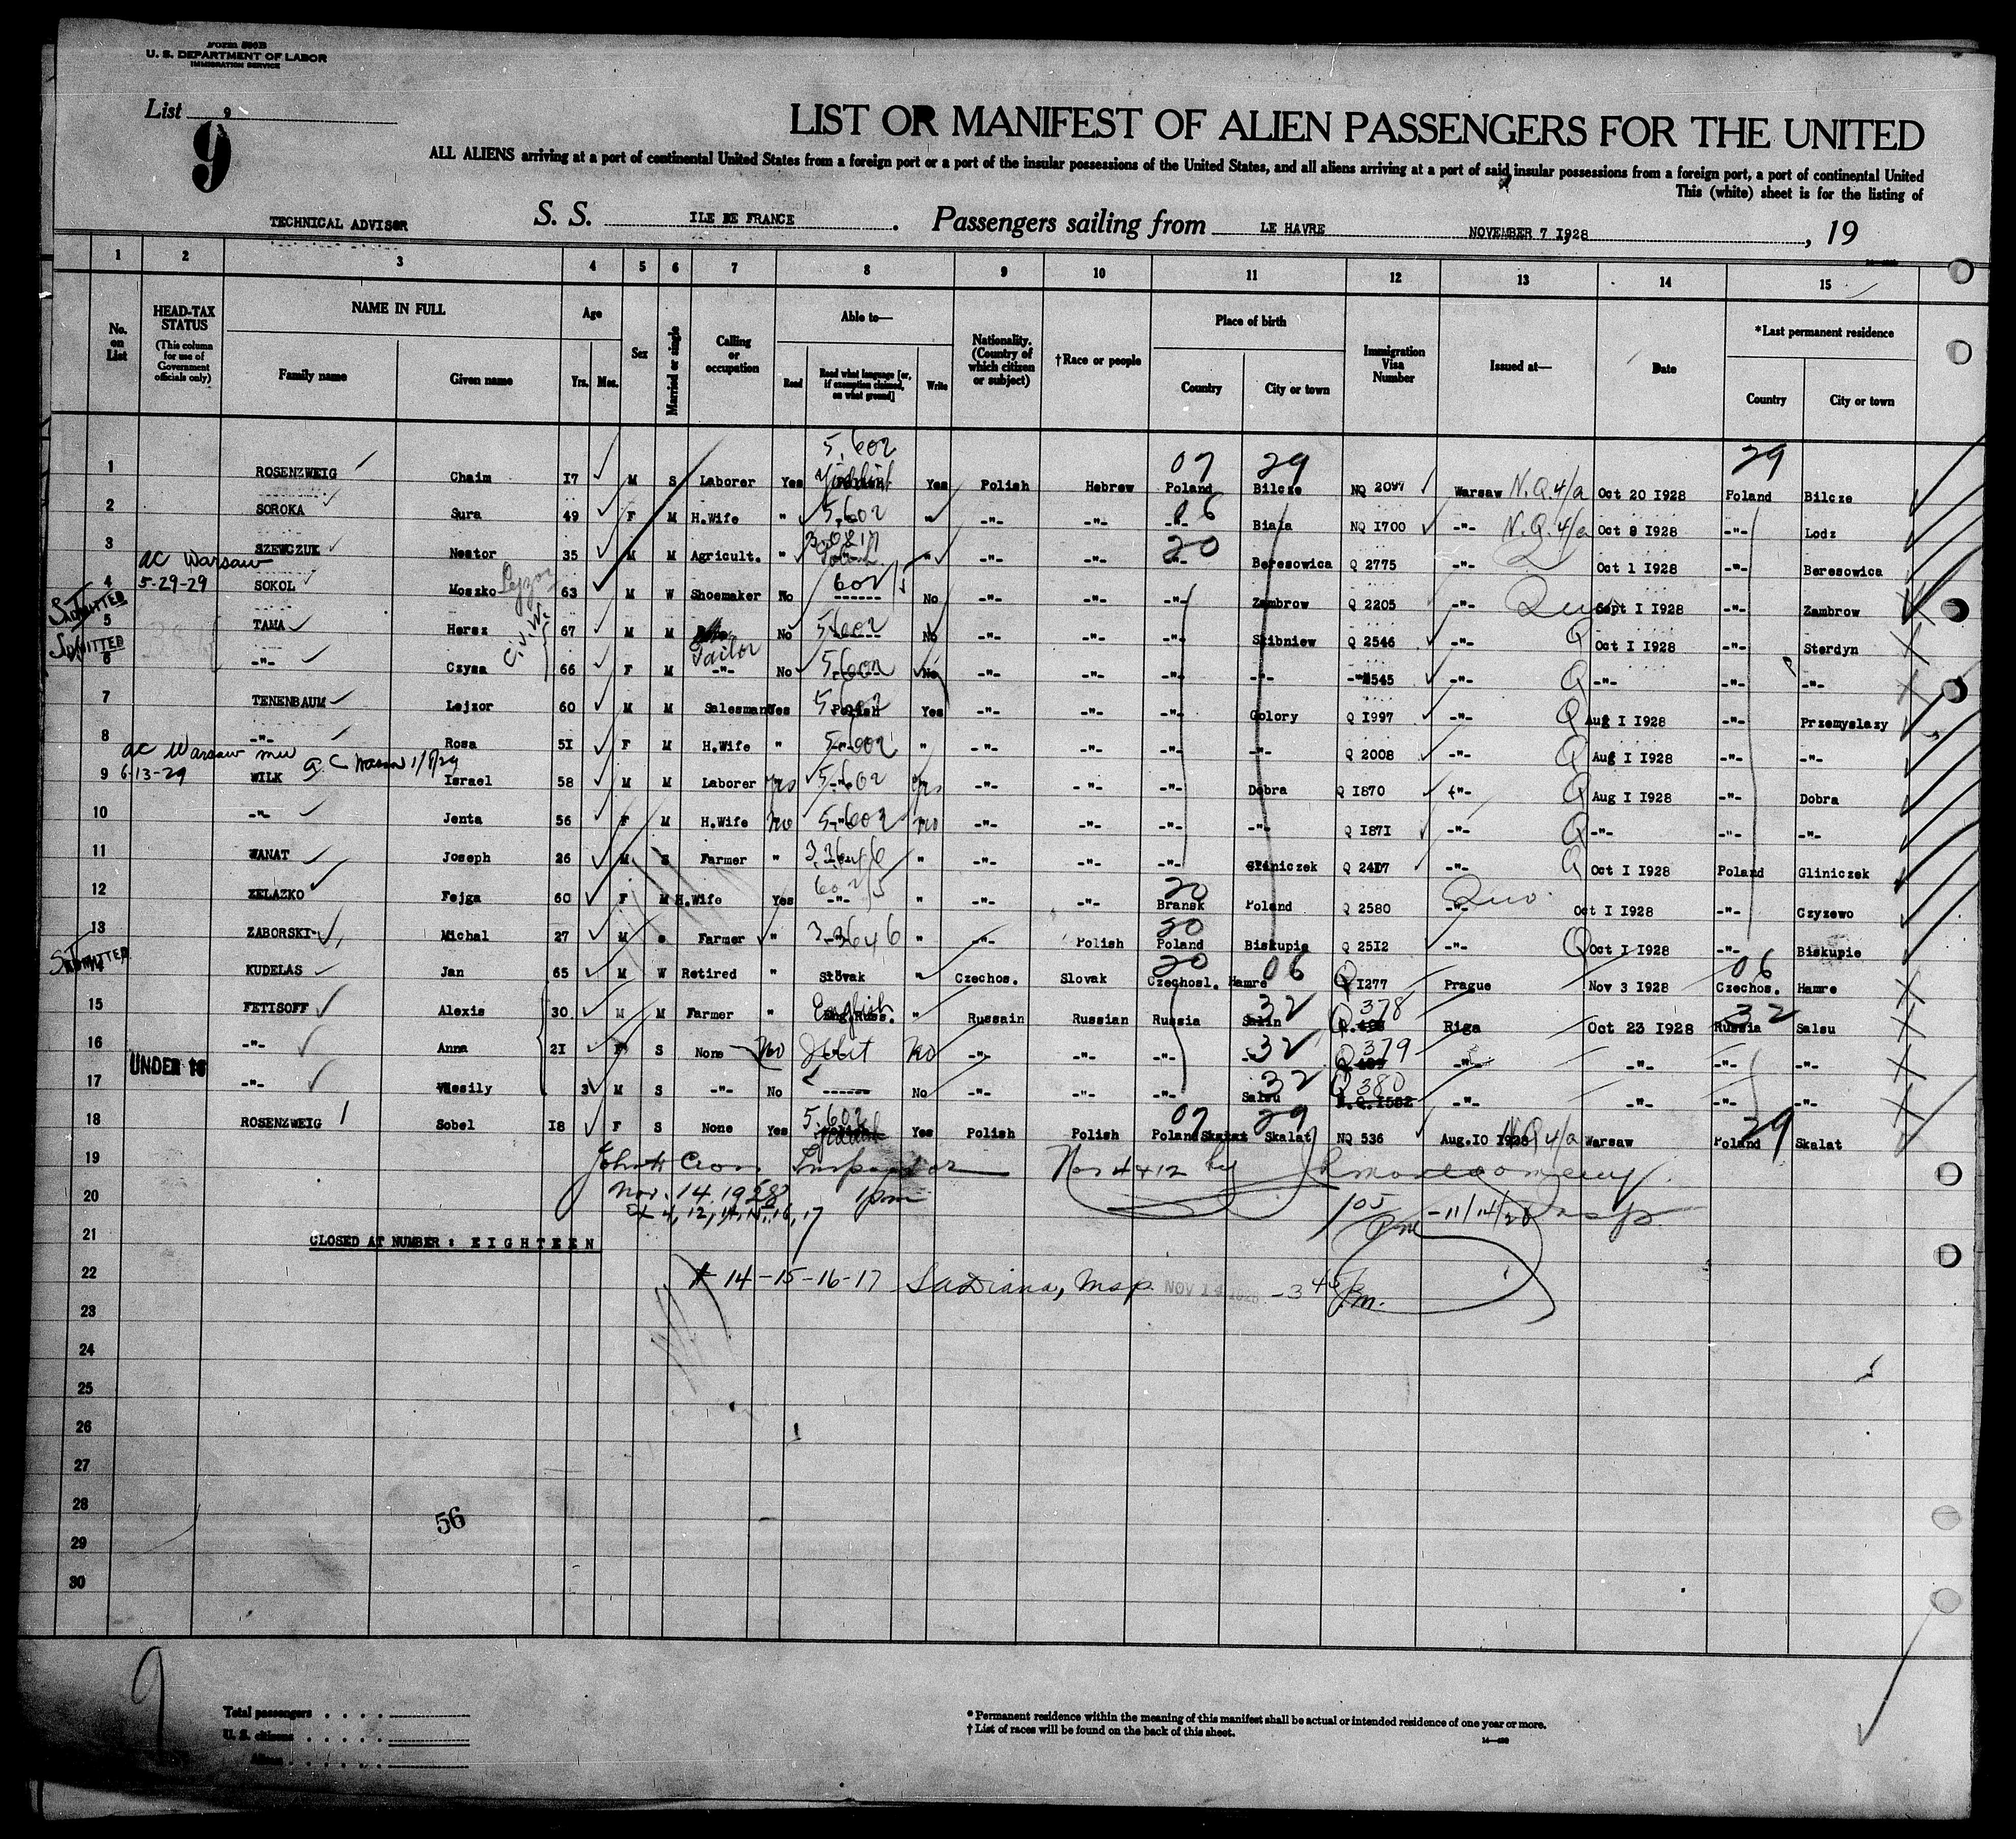 Form 500B
U. S. DEPARTMENT OF LABOR
IMMIGRATION SERVICE
List 9
9
LIST OR MANIFEST OF ALIEN PASSENGERS FOR THE UNITED
ALL ALIENS arriving at a port of continental United States from a foreign port or a port of the insular possessions of the United States, and all aliens arriving at a port of said insular possessions from a foreign port, a port of continental United
This (white) sheet is for the listing of
TECHNICAL ADVISOR S. S. ILE DE FRANCE. Passengers sailing from LE HAVRE NOVEMBER 7 I928, 19
1 2 3 4 5 6 7 8 9 10 11 12 13 14 15
No. on List
HEAD-TAX STATUS (This column for use of Government officials only)
NAME IN FULL Family name Given name
Age Yrs. Mos.
Sex
Married or single
Calling or occupation
Able to— Read Read what language [or, if exemption claimed, on what ground] Write
Nationality. (Country of which citizen or subject)
†Race or people
Place of birth Country City or town
Immigration Visa Number
Issued at—
Date
*Last permanent residence Country City or town
5.602 07 29 29
1 ROSENZWEIG Chaim I7 M S Laborer Yes Yiddish Yes Polish Hebrew Poland Bilcze NQ Warsaw N.Q.4/a Oct 20 I928 Poland Bilcze
2 SOROKA Sura 49 F M H.Wife " 5.602 " -"- -"- 06 -"- Biala NQ I700 -"- N.Q.4/a Oct 8 I928 -"- Lodz
3 SZEWCZUK Nestor 35 M M Agricult. " " -"- -"- 20 Beresowica Q 2775 -"- Oct I I928 -"- Beresowica
ac Warsaw
5-29-29
4 SOKOL Moszko Lejzor 63 M W Shoemaker No 602 ------ No -"- -"- -"- Zambrow Q 2205 -"- Sept I I928 -"- Zambrow
ADMITTED
5 TAMA Hersz 67 M M Tailor No 5.602 No -"- -"- -"- Stibniew Q 2546 -"- Q Oct I I928 -"- Sterdyn
ADMITTED
6 -"- Czysa 66 F M -"- No 5.602 No -"- -"- -"- -"- -"-2545 -"- Q -"- -"- -"-
7 TENENBAUM Lejzor 60 M M Salesman Yes 5.602 Polish Yes -"- -"- -"- Golory Q I997 -"- Q Aug I I928 -"- Przemyslazy
8 -"- Rosa 5I F M H.Wife " 5.602 " -"- -"- -"- -"- Q 2008 -"- Q Aug I I928 -"- -"-
ac Warsaw
6-13-29
9 WILK Israel 58 M M Laborer Yes 5.602 Yes -"- -"- -"- Dobra Q I870 -"- Q Aug I I928 -"- Dobra
10 -"- Jenta 56 F M H.Wife No 5.602 No -"- -"- -"- -"- Q I87I -"- Q -"- -"- -"-
11 WANAT Joseph 26 M S Farmer " " -"- -"- -"- Gliniczek Q -"- Q Oct I I928 Poland Gliniczek
12 ZELAZKO Fejga 60 F M H.Wife Yes -"- " -"- -"- 20 Bransk Poland Q 2580 -"- Oct I I928 -"- Czyzewo
13 ZABORSKI Michal 27 M Farmer " 3.3646 " -"- Polish 20 Poland Biskupie Q 25I2 -"- Q Oct I I928 -"- Biskupie
ADMITTED
14 KUDELAS Jan 65 M W Retired " Slovak " Czechos. Slovak 20 Czechosl. Hamre 06 Q I277 Prague Nov 3 I928 06 Czechos. Hamre
15 FETISOFF Alexis 30 M M Farmer " English " Russain Russian Russia Salin 32 Q 378 Riga Oct 23 I928 32 Russia Salsu
16 -"- Anna 2I F S None No No -"- -"- -"- 32 Q 379 -"- -"- -"- -"-
UNDER 16
17 -"- Wassily 3 M S -"- No ------ No -"- -"- -"- 32 Salsu Q 380 N.Q.I582 -"- -"- -"- -"-
18 ROSENZWEIG Sobel I8 F S None Yes 5.602 Yes Polish Polish 07 Poland Skalat 29 Skalat NQ 536 Aug.I0 I928 N.Q 4/a Warsaw 29 Poland Skalat
19
Inspector Nos 4 & 12 by
20 Nov. 14, 1928 1 pm
Ex 4, 12, 14, 15, 16, 17
1 05 Pm - 11/14/28 Insp
21 CLOSED AT NUMBER : E I G H T E E N
22 # 14-15-16-17 LaDiana, Insp. NOV 14 1928 - 3 45 Pm.
23
24
25
26
27
28
56
29
30
9
Total passengers . . . .
U. S. citizens . . . . .
Aliens . . . . . .
* Permanent residence within the meaning of this manifest shall be actual or intended residence of one year or more.
† List of races will be found on the back of this sheet.